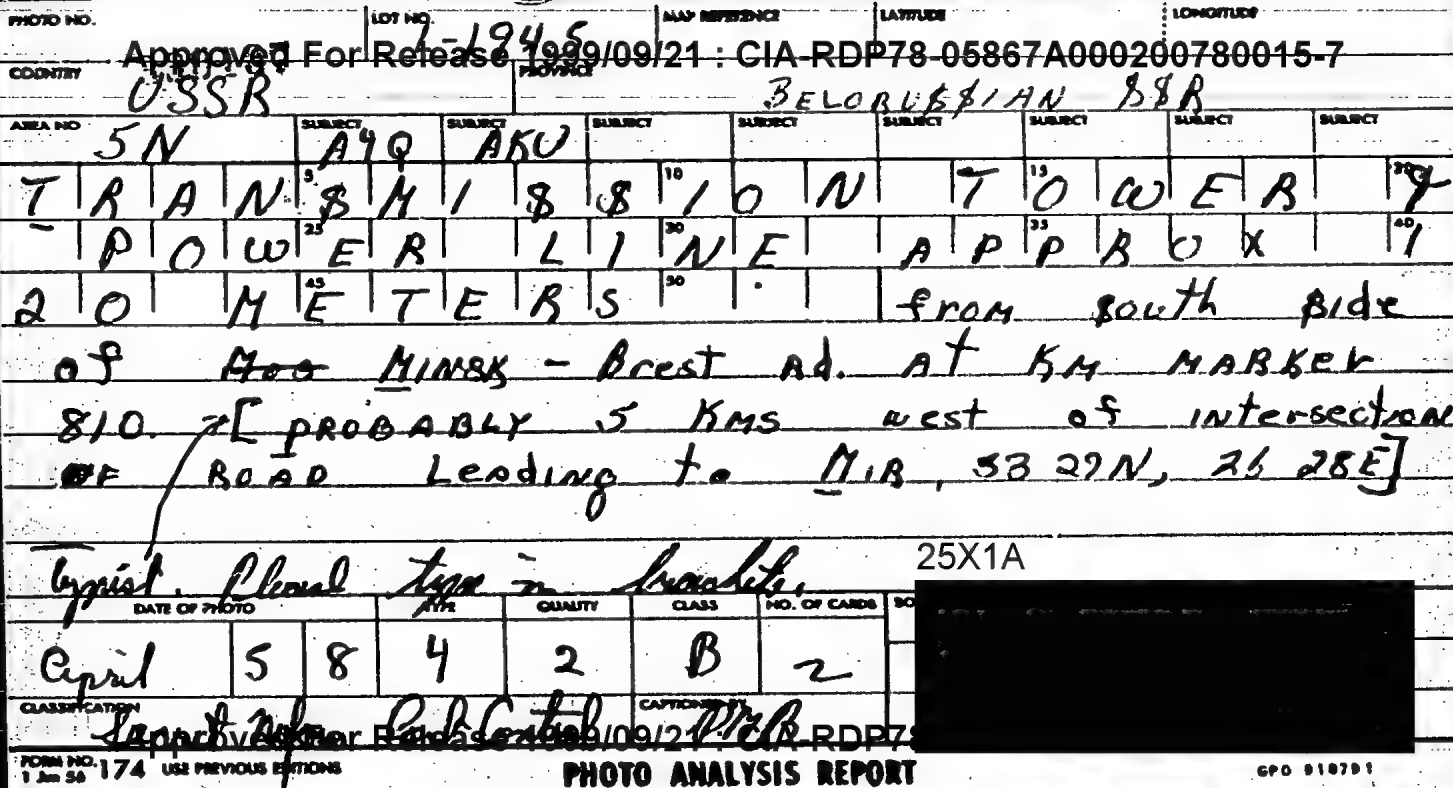 PHOTO NO. LOT NO. MAP REFERENCE LATITUDE LONGITUDE
1-1945
Approved For Release 1999/09/21 : CIA-RDP78-05867A000200780015-7
COUNTRY PROVINCE
USSR BELORUSSIAN SSR
AREA NO SUBJECT SUBJECT SUBJECT SUBJECT SUBJECT SUBJECT SUBJECT SUBJECT
5N A4Q AKU
TRANSMISSION TOWER &
POWER LINE APPROX 1
20 METERS. from south side
of MINSK - Brest Rd. At KM MARKER
810. [PROBABLY 5 KMS west of intersection
OF ROAD Leading to MIR, 53 27N, 26 28E]
Typist. Please type in brackets.
25X1A
DATE OF PHOTO TYPE QUALITY CLASS NO. OF CARDS
April 5 8 4 2 B 2
CLASSIFICATION CAPTIONED BY
Approved For Release 1999/09/21 : CIA-RDP78
FORM NO. 174 USE PREVIOUS EDITIONS PHOTO ANALYSIS REPORT GPO 918791
1 Jun 56